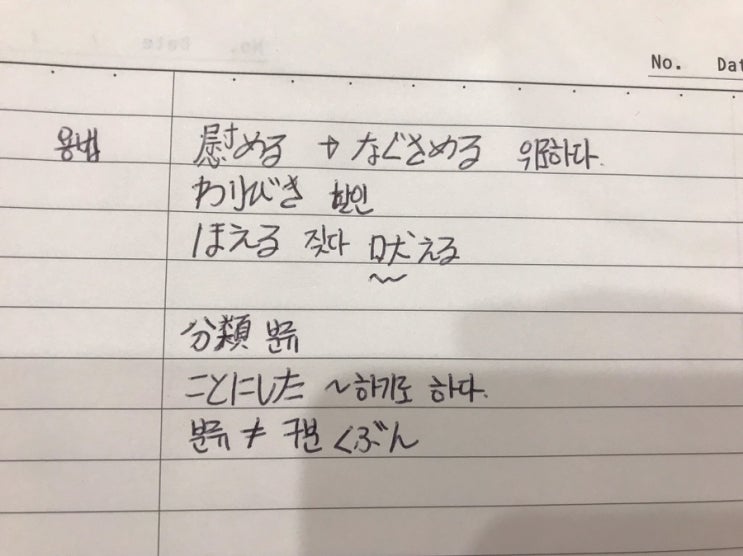 No. Dat
용법 慰める → なぐさめる 위로하다.
わりびき 할인
ほえる 짖다 吠える
分類 분류
ことにした ~하기로 하다.
분류 ≠ 구분 くぶん